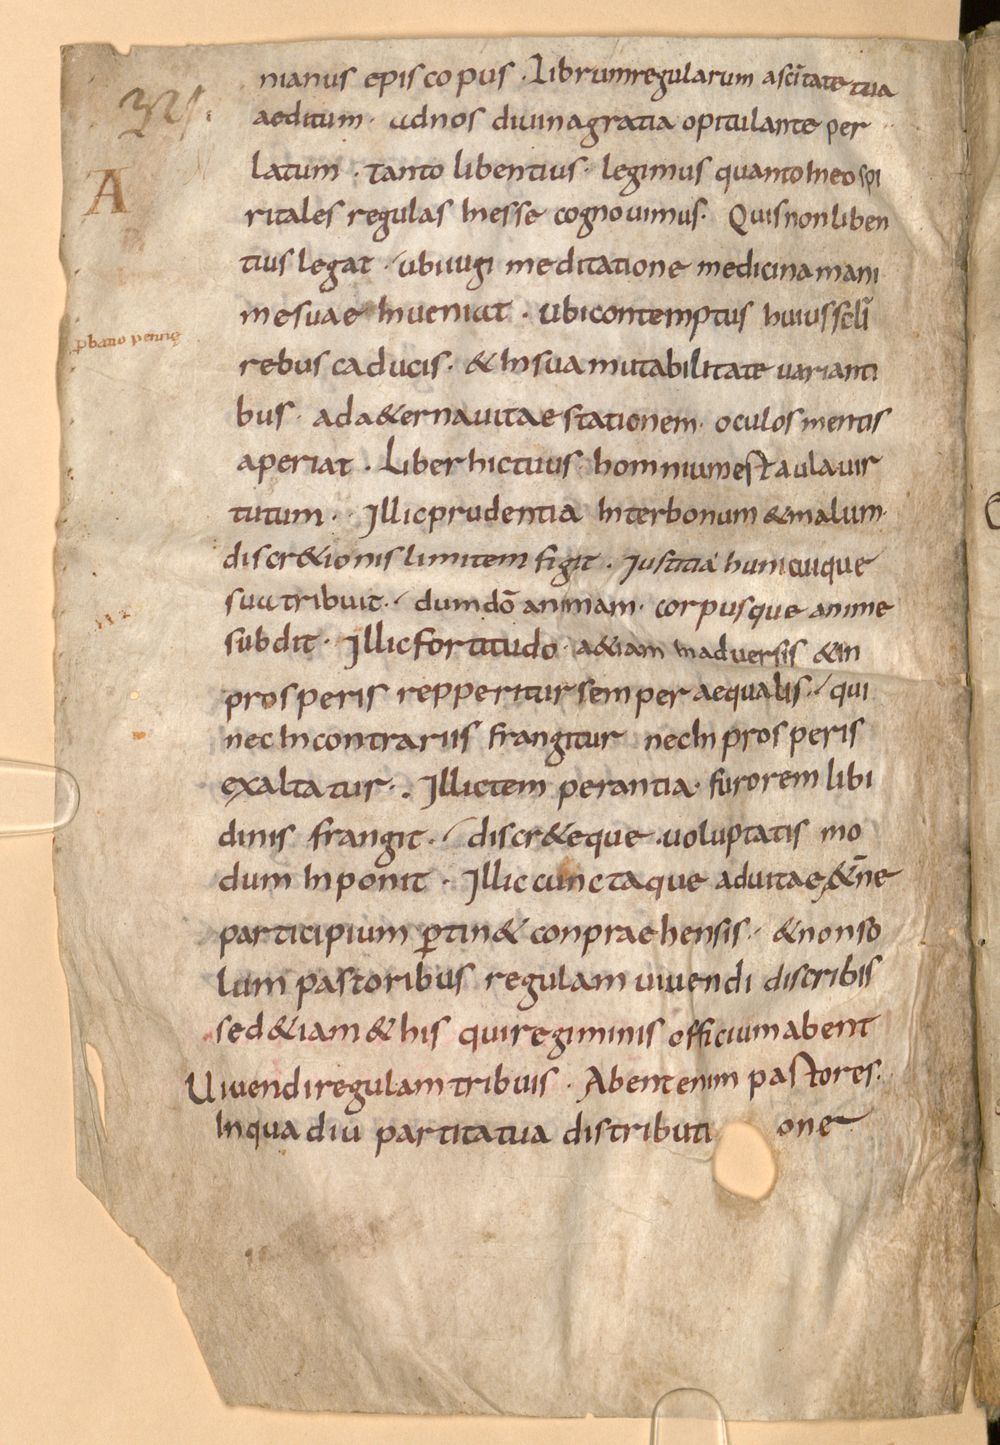 nianus episcopus . Librumregularum asc̄itate tua
aeditum . adnos diuinagratia opitulante per
A
latum . tanto libentius . legimus quanto Ineo spi
ritales regulas Inesse cognouimus . Quisnonliben
tius legat . ubi iugi meditatione medicinam ani
p̱bano penniȩ
mesuae Inueniat . ubicontemptus huiussc̄li
rebus caducis . & Insua mutabilitate uarianti
bus . ada&ernauitae stationem . oculos mentis
aperiat . Liber hictuus hominiumest aulauir
tutum . . Illicprudentia Interbonum &malum .
discr&ionislimitem figit . Iustitia hunicuique
sua tribuit . dumdō animam . corpusque anime
subdit . Illicfortitudo . a&iam inaduersis &in
prosperis repperitur semper aequalis . qui
nec Incontrariis frangitur necIn prosperis
exaltatur . . Illictemperantia . furorem libi
dinis frangit . discr&eque . uoluptatis mo
dum Inponit . Illic cunctaque aduitae &n̄e
participium p̱tin& conpraehensis . &nonso
lum pastoribus regulam uiuendi discribis
sed &iam & his quiregiminis officium abent
Uiuendiregulam tribuis . Abentenim pastores .
Inqua diu partitatua distributi one